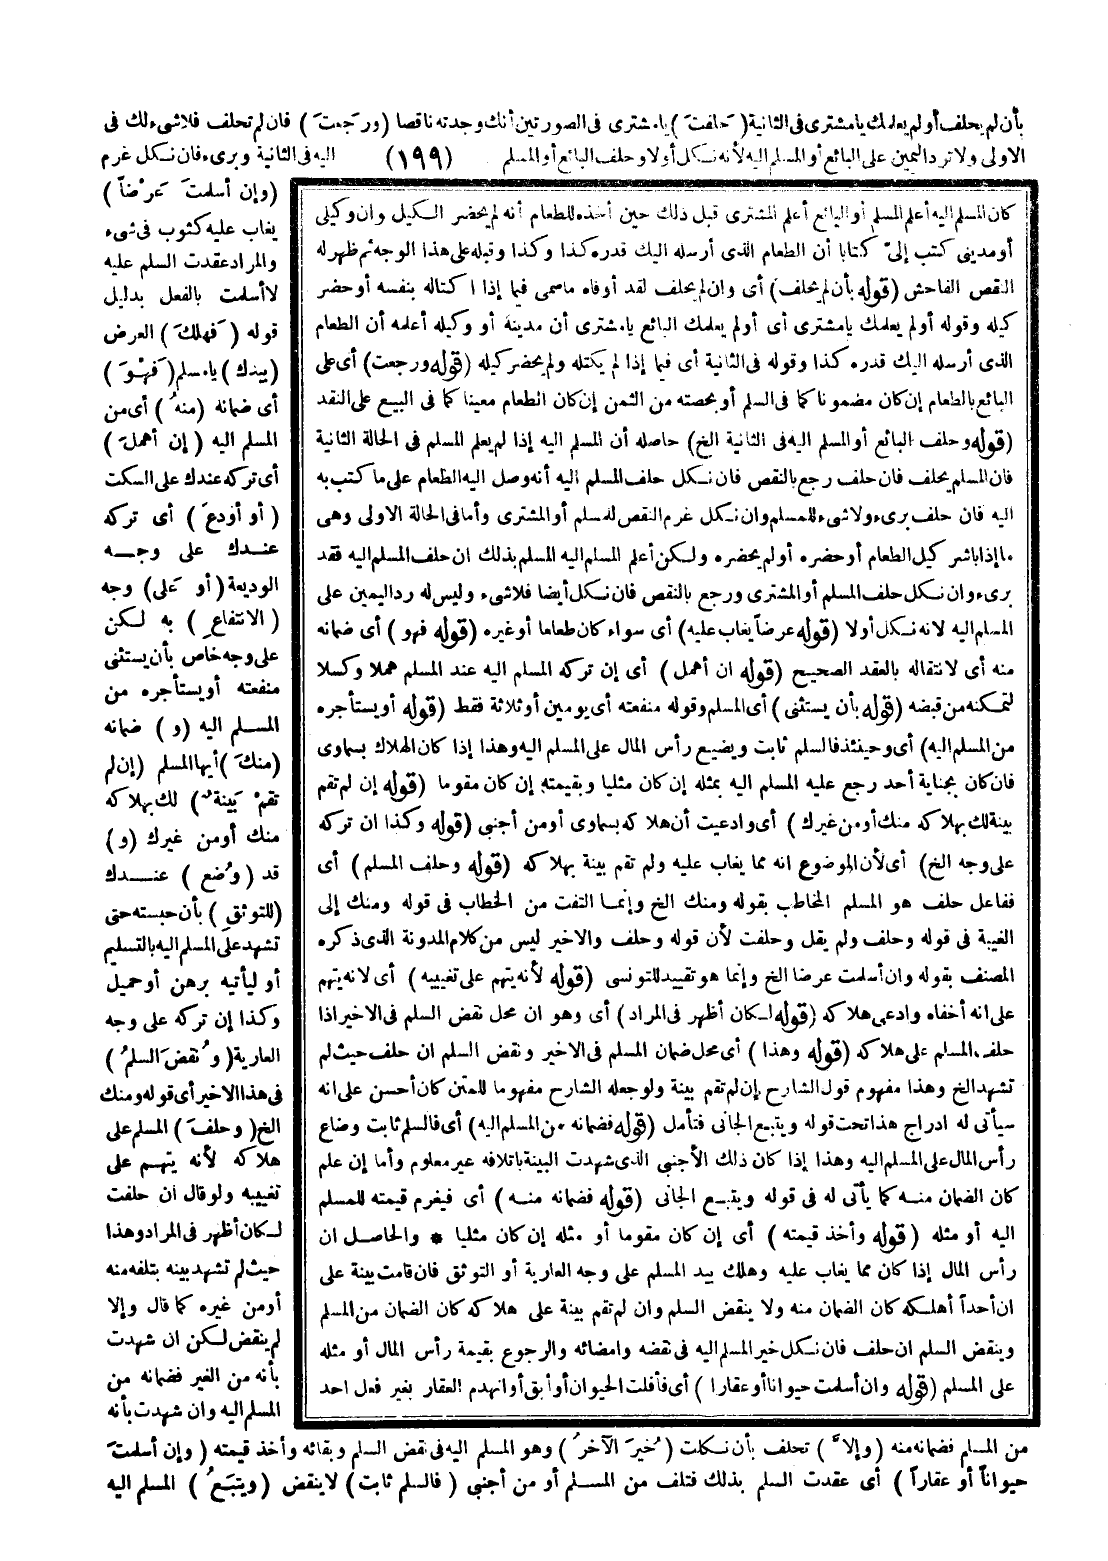 بأن لم يحلف أو لم يعلمك يا مشترى فى الثانية (حَلفتَ) يا مشترى فى الصورتين أنك وجدته ناقصا (ورَجعتَ) فان لم تحلف فلا شىء لك فى
الاولى ولا ترد اليمين على البائع أو المسلم اليه لأنه نكل أولا وحلف البائع أو المسلم (١٩٩) اليه فى الثانية وبرىء فان نكل غرم
(وإن أسلمتَ عَرْضاً)
يغاب عليه كثوب فى شىء
والمراد عقدت السلم عليه
لا أسلمت بالفعل بدليل
قوله (فَهلكَ) العرض
(بيدك) يا مسلم (فَهْوَ)
أى ضمانه (منهُ) أى من
المسلم اليه (إن أهملَ)
أى تركه عندك على السكت
(أو أودعَ) أى تركه
عندك على وجه
الوديعة (أو عَلى) وجه
(الانتفاعِ) به لكن
على وجه خاص بأن يستثنى
منفعته أو يستأجره من
المسلم اليه (و) ضمانه
(منكَ) أيها المسلم (إن لم
تقمْ بَينةٌ) لك بهلاكه
منك أو من غيرك (و)
قد (وُضع) عندك
(للتوثقِ) بأن حبسته حتى
تشهد على المسلم اليه بالتسليم
أو ليأتيه برهن أو حميل
وكذا إن تركه على وجه
العارية (ونُقضَ السلمُ)
فى هذا الاخير أى قوله ومنك
الخ (وحلفَ) المسلم على
هلاكه لأنه يتهم على
تغييبه ولو قال ان حلفت
لكان أظهر فى المراد وهذا
حيث لم تشهد بينه بتلفه منه
أو من غيره كما قال وإلا
لم ينقض لكن ان شهدت
بأنه من الغير فضمانه من
المسلم اليه وان شهدت بأنه
كان المسلم اليه أعلم المسلم أو البائع أعلم المشترى قبل ذلك حين أخذه للطعام أنه لم يحضر الكيل وان وكيلى
أو مدينى كتب إلىّ كتابا أن الطعام الذى أرسله اليك قدره كذا وكذا وقبله على هذا الوجه ثم ظهر له
النقص الفاحش (قوله بأن لم يحلف) أى وان لم يحلف لقد أوفاه ما سمى فيما إذا اكتاله بنفسه أو حضر
كيله وقوله أو لم يعلمك يا مشترى أى أو لم يعلمك البائع يا مشترى أن مدينه أو وكيله أعلمه أن الطعام
الذى أرسله اليك قدره كذا وقوله فى الثانية أى فيما إذا لم يكتله ولم يحضر كيله (قوله ورجعت) أى على
البائع بالطعام إن كان مضمونا كما فى السلم أو بحصته من الثمن إن كان الطعام معينا كما فى البيع على النقد
(قوله وحلف البائع أو المسلم اليه فى الثانية الخ) حاصله أن المسلم اليه إذا لم يعلم المسلم فى الحالة الثانية
فان المسلم يحلف فان حلف رجع بالنقص فان نكل حلف المسلم اليه أنه وصل اليه الطعام على ما كتب به
اليه فان حلف برىء ولا شىء للمسلم وان نكل غرم النقص للمسلم أو المشترى وأما فى الحالة الاولى وهى
ما إذا باشر كيل الطعام أو حضره أو لم يحضره ولكن أعلم المسلم اليه المسلم بذلك ان حلف المسلم اليه فقد
برىء وان نكل حلف المسلم أو المشترى ورجع بالنقص فان نكل أيضا فلا شىء وليس له رد اليمين على
المسلم اليه لانه نكل أولا (قوله عرضاً يغاب عليه) أى سواء كان طعاما أو غيره (قوله فهو) أى ضمانه
منه أى لانتقاله بالعقد الصحيح (قوله ان أهمل) أى إن تركه المسلم اليه عند المسلم هملا وكسلا
لتمكنه من قبضه (قوله بأن يستثنى) أى المسلم وقوله منفعته أى يومين أو ثلاثة فقط (قوله أو يستأجره
من المسلم اليه) أى وحينئذ فالسلم ثابت ويضيع رأس المال على المسلم اليه وهذا إذا كان الهلاك بسماوى
فان كان بجناية أحد رجع عليه المسلم اليه بمثله إن كان مثليا وبقيمته إن كان مقوما (قوله إن لم تقم
بينة لك بهلاكه منك أو من غيرك) أى وادعيت أن هلاكه بسماوى أو من أجنبى (قوله وكذا ان تركه
على وجه الخ) أى لأن الموضوع انه مما يغاب عليه ولم تقم بينة بهلاكه (قوله وحلف المسلم) أى
ففاعل حلف هو المسلم المخاطب بقوله ومنك الخ وإنما التفت من الخطاب فى قوله ومنك إلى
الغيبة فى قوله وحلف ولم يقل وحلفت لأن قوله وحلف والاخير ليس من كلام المدونة الذى ذكره
المصنف بقوله وان أسلمت عرضا الخ وإنما هو تقييد للتونسى (قوله لأنه يتهم على تغييبه) أى لانه يتهم
على انه أخفاه وادعى هلاكه (قوله لكان أظهر فى المراد) أى وهو ان محل نقض السلم فى الاخير اذا
حلف المسلم على هلاكه (قوله وهذا) أى محل ضمان المسلم فى الاخير ونقض السلم ان حلف حيث لم
تشهد الخ وهذا مفهوم قول الشارح إن لم تقم بينة ولو جعله الشارح مفهوما للمتن كان أحسن على انه
سيأتى له ادراج هذا تحت قوله ويتبع الجانى فتأمل (قوله فضمانه من المسلم اليه) أى فالسلم ثابت وضاع
رأس المال على المسلم اليه وهذا إذا كان ذلك الأجنبى الذى شهدت البينة باتلافه غير معلوم وأما إن علم
كان الضمان منه كما يأتى له فى قوله ويتبع الجانى (قوله فضمانه منه) أى فيغرم قيمته للمسلم
اليه أو مثله (قوله وأخذ قيمته) أى إن كان مقوما أو مثله إن كان مثليا * والحاصل ان
رأس المال إذا كان مما يغاب عليه وهلك بيد المسلم على وجه العارية أو التوثق فان قامت بينة على
ان أحداً أهلكه كان الضمان منه ولا ينقض السلم وان لم تقم بينة على هلاكه كان الضمان من المسلم
وينقض السلم ان حلف فان نكل خير المسلم اليه فى نقضه وامضائه والرجوع بقيمة رأس المال أو مثله
على المسلم (قوله وان أسلمت حيوانا أو عقارا) أى فأفلت الحيوان أو أبق أو انهدم العقار بغير فعل احد
من المسلم فضمانه منه (وإلاَّ) تحلف بأن نكلت (خُيرَ الآخرُ) وهو المسلم اليه فى نقض السلم وبقائه وأخذ قيمته (وإن أسلمتَ
حيواناً أو عقاراً) أى عقدت السلم بذلك فتلف من المسلم أو من أجنبى (فالسلم ثابت) لا ينقض (ويتبَعُ) المسلم اليه